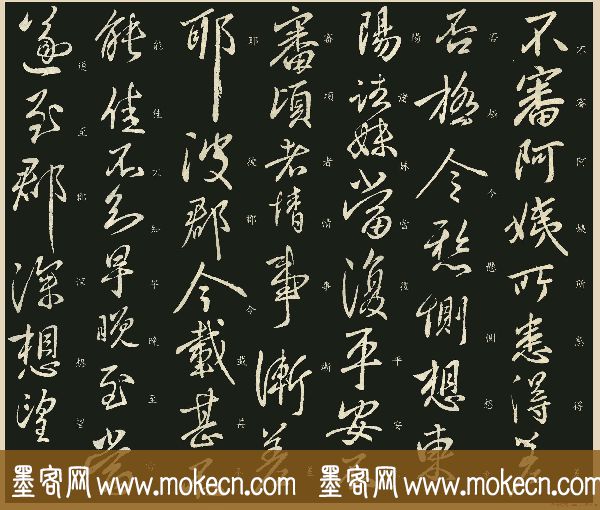 不審阿姨所患得差
否極令懸側想東
陽諸妹當復平安不
審頃者情事漸差
耶彼郡今載甚不
能佳不知早晚至當
遂至郡深想望
墨客网 www.mokecn.com 墨客网 www.mokecn.com